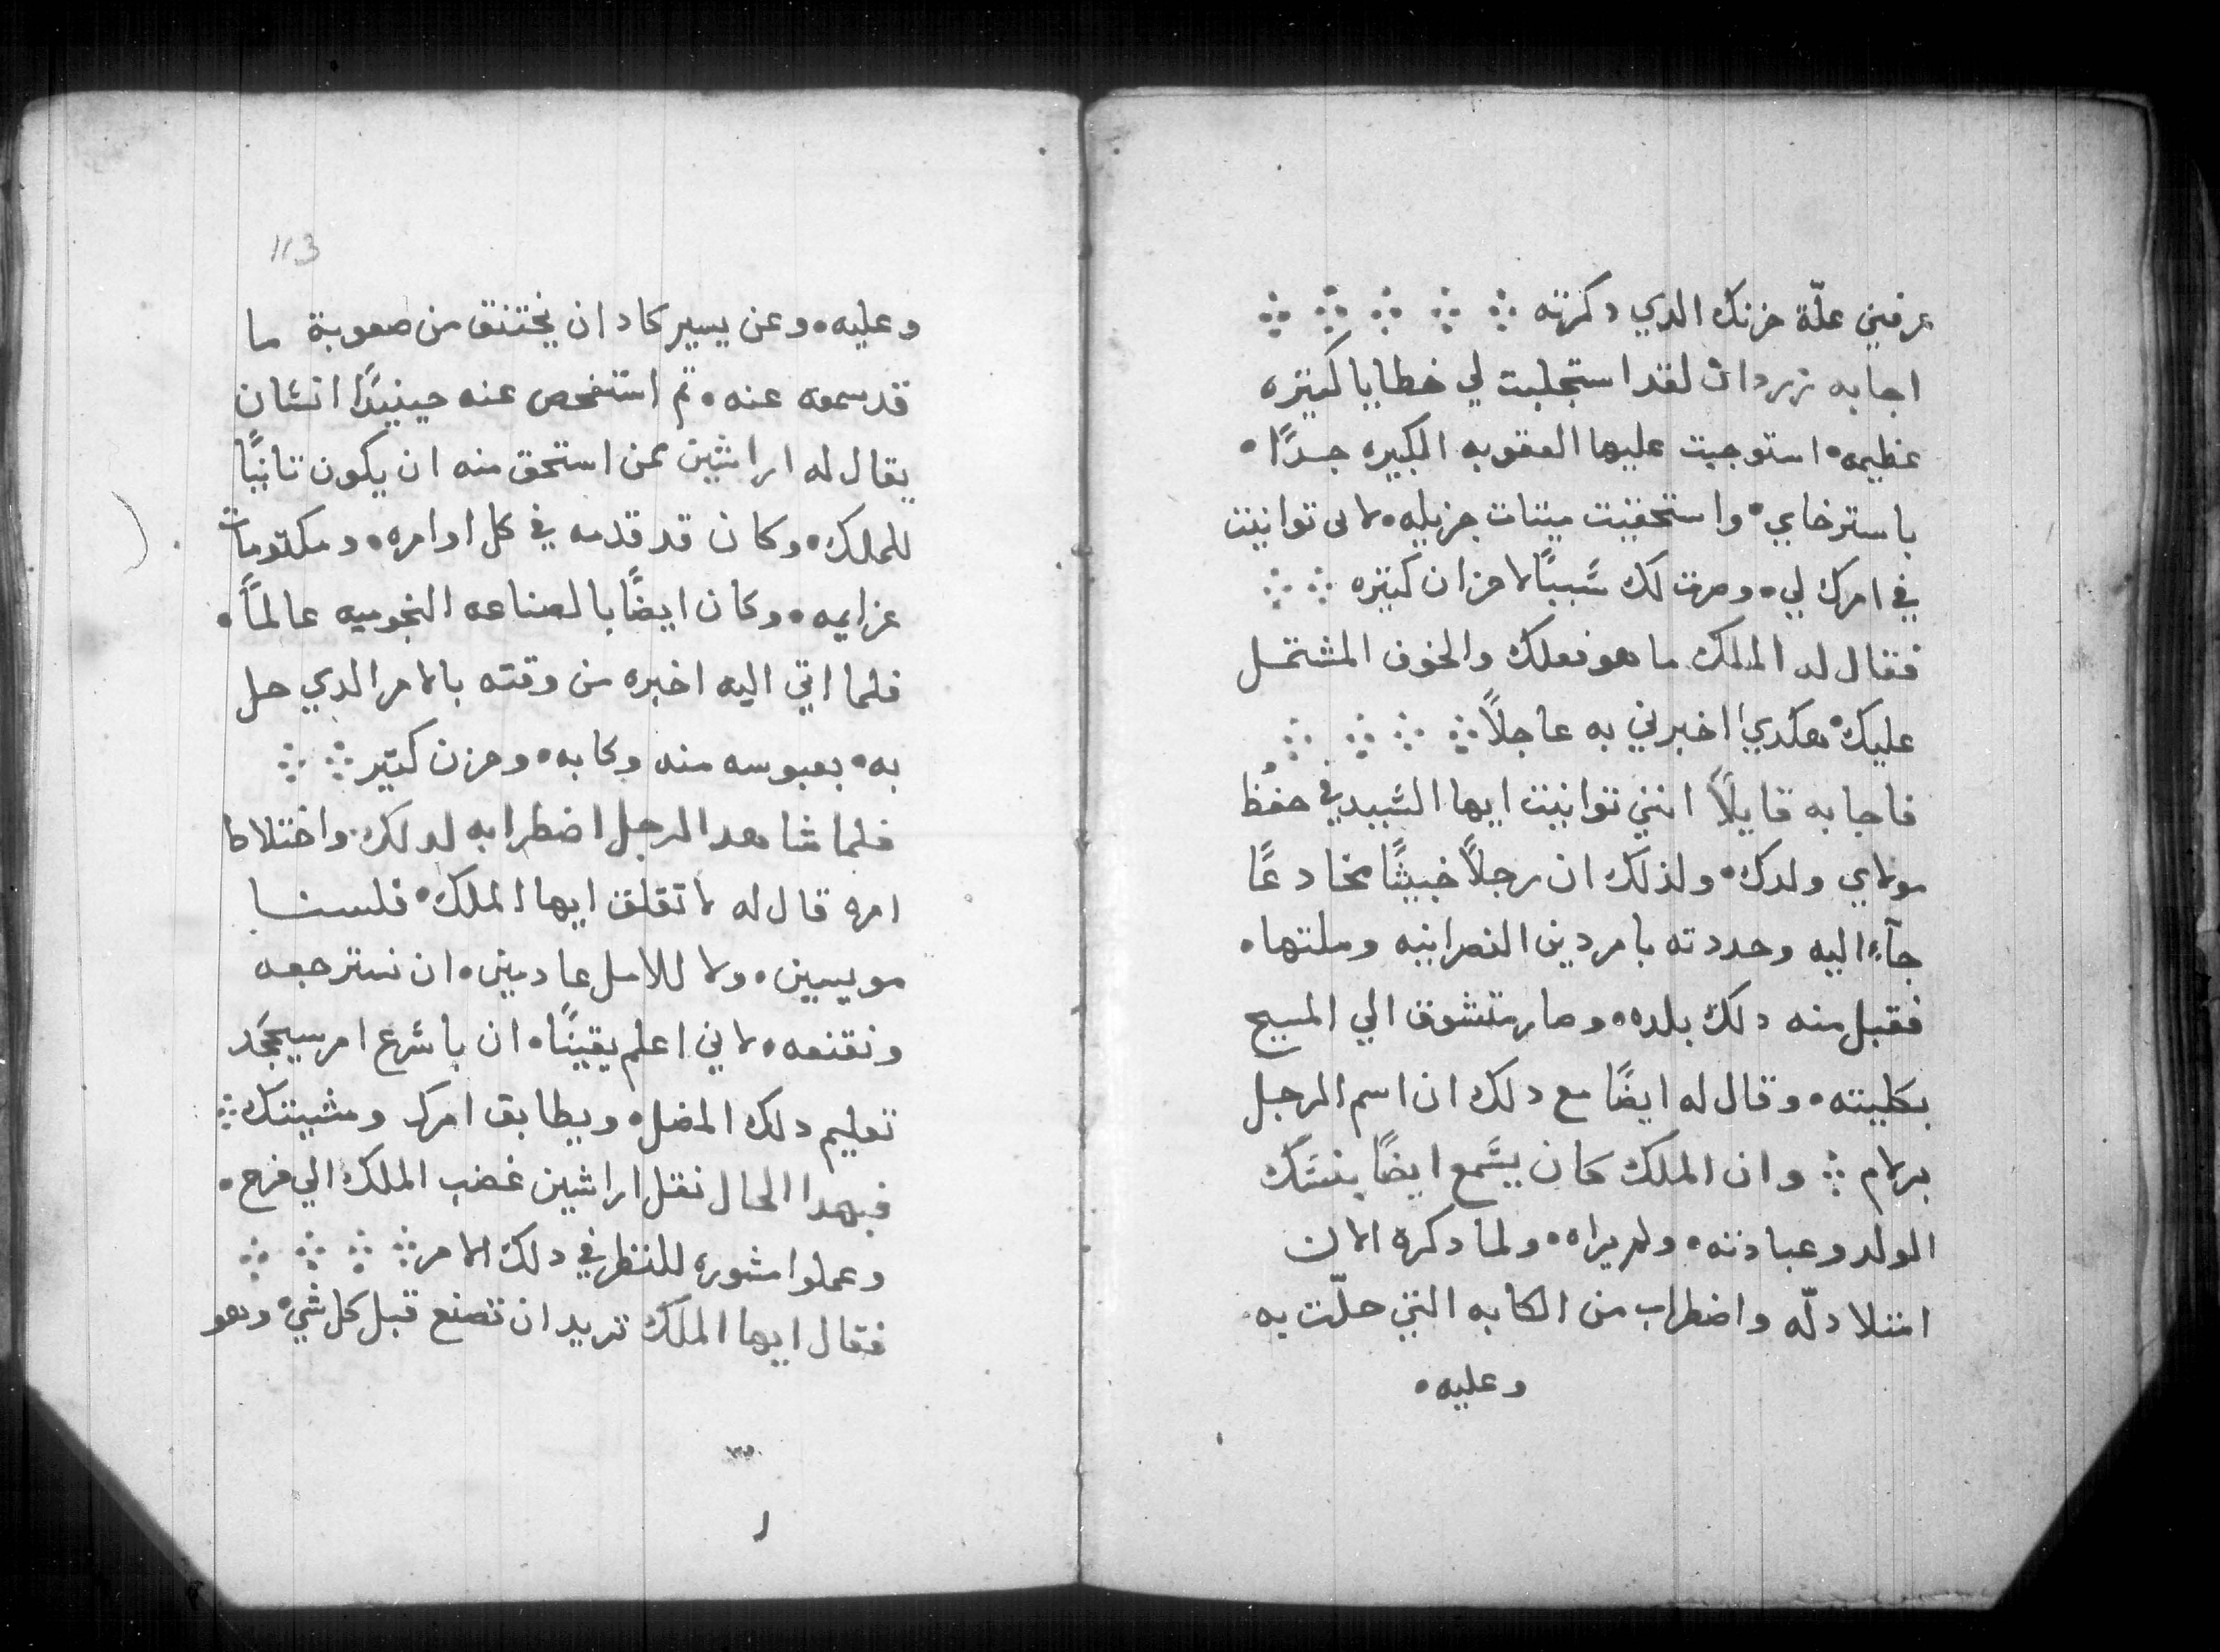 عرفني علّة حزنك الدي دكرته ⁘ ⁘ ⁘ ⁘ ⁘
اجابه زردان لقد استجلبت لي خطايا كتيره
عظيمه • استوجبت عليها العقوبه الكبيره جدًا •
باسترخاي • واستحقيت ميتات جزيله • لانى توانيت
في امرك لي • وصرت لك سَببًا لاحزان كتيره ⁘ ⁘
فقال له الملك ما هو فعلك والخوف المشتمل
عليك • هكدي اخبرني به عاجلاً ⁘ ⁘ ⁘ ⁘
فاجابه قايلاً انني توانيت ايها السَيد في حفظ
مولاي ولدك • ولذلك ان رجلاً خبيثًا مخادعًا
جآء اليه وحددته بامر دين النصرانيه وملتها •
فقبل منه دلك بلده • وصار متشوق الي المسيح
بكليته • وقال له ايضًا مع دلك ان اسم الرجل
برلام ⁘ وان الملك كان يسَمع ايضًا بنسَك
الولد وعبادته • ولم يراه • ولما دكره الان
امتلا دلّه واضطراب من الكابه التي حلّت به •
وعليه •
113
وعليه • وعن يسير كاد ان يختنق من صعوبة ما
قد سمعه عنه • تم استفحص عنه حينيدًا انسَان
يقال له اراشين ممن استحق منه ان يكون تانيًا
للملك • وكان قد قدمه في كل اوامره • ومكتومات
عزايمه • وكان ايضًا بالصناعه النجوميه عالمًا •
فلما اتي اليه اخبره من وقته بالامر الدي حل
به • بعبوسه منه وكابه • وحزن كتير ⁘ ⁘
فلما شاهد الرجل اضطرابه لدلك • واختلاط
امره قال له لا تقلق ايها الملك • فلسنا
مويسين • ولا للامل عادمين • ان نسترجعه
ونقنعه • لاني اعلم يقينًا • ان باسَرع امر سيجحَد
تعليم دلك المضل • ويطابق امرك ومشيتك ⁘
فبهدا الحال نقل اراشين غضب الملك الي فرح •
وعملوا مشوره للنظر في دلك الامر ⁘ ⁘ ⁘ ⁘
فقال ايها الملك تريد ان تصنع قبل كل شيء وهو